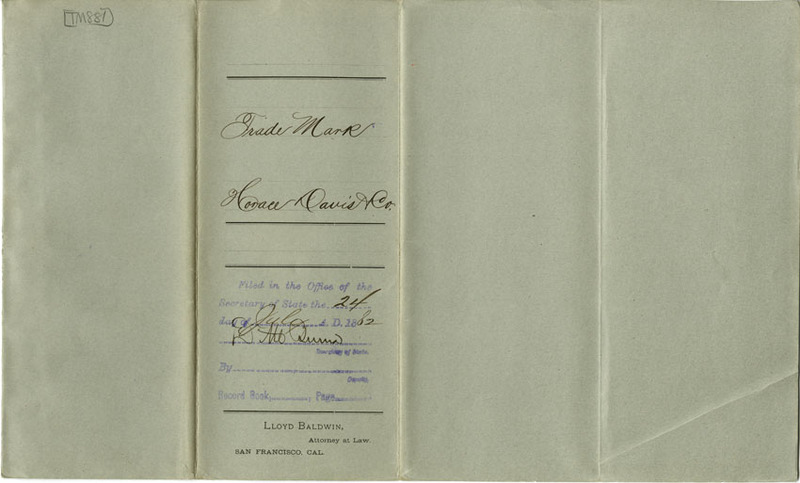 TM881
Trade Mark
Horace Davis & Co.
Filed in the Office of the
Secretary of State the 24
day of July A. D. 1882
Secretary of State.
By
Deputy.
Record Book, Page
LLOYD BALDWIN,
Attorney at Law.
SAN FRANCISCO, CAL.